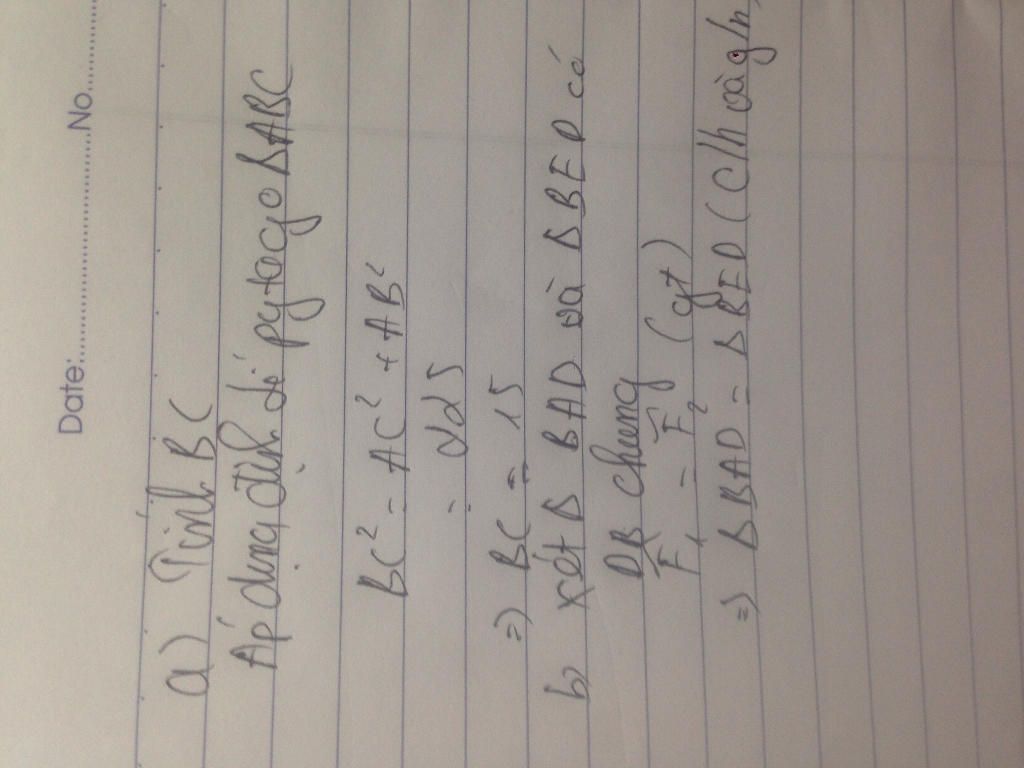 Date:....................No.
a) Tính BC
Áp dụng định lí pytago ΔABC
BC² = AC² + AB²
= 225
=> BC = 15
b, xét Δ BAD và Δ BED có
DB chung
F₁ = F₂ (gt)
=> Δ BAD = Δ BED (C/h và gh,